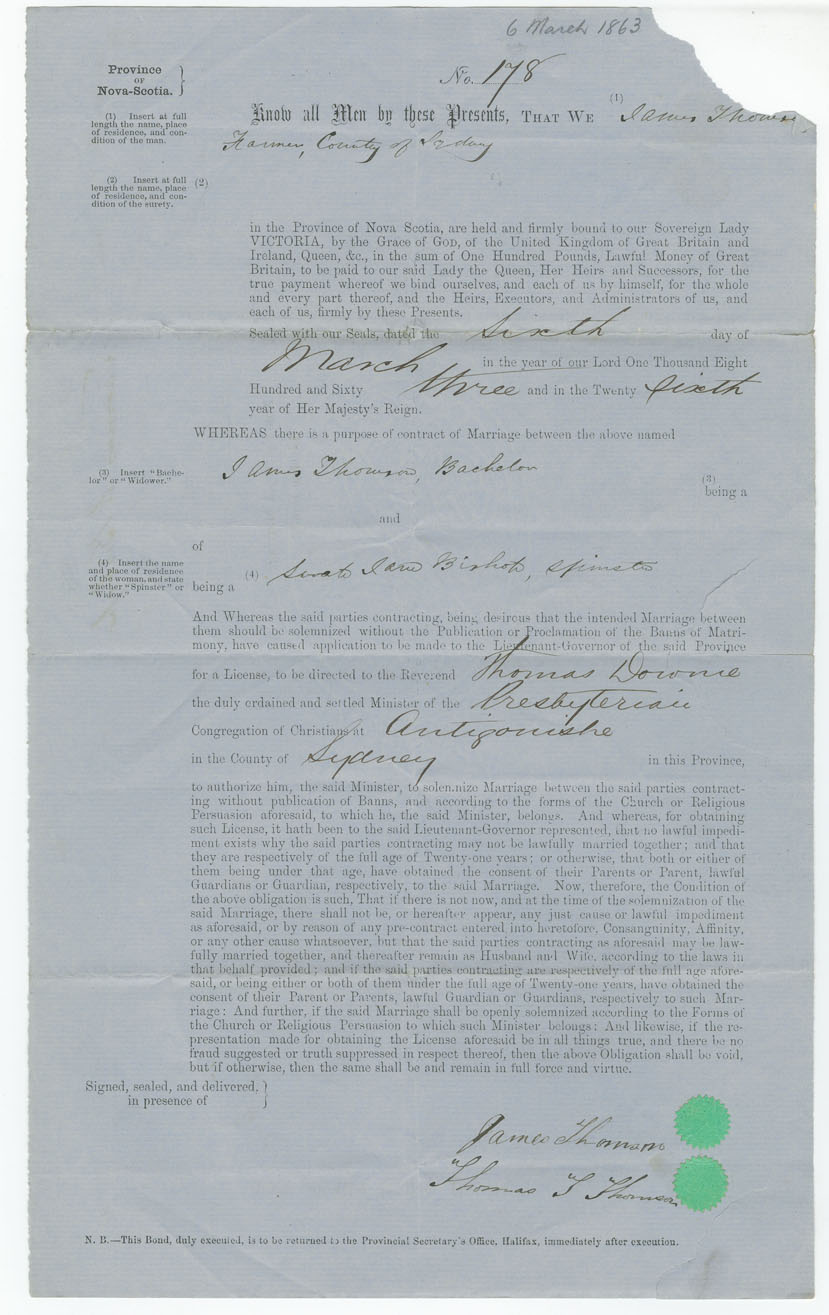 6 March 1863
Province
OF
Nova-Scotia.
No. 178
(1) Insert at full
length the name, place
of residence, and con-
dition of the man.
Know all Men by these Presents, THAT WE (1) James Thomson
Farmer, County of Sydney
(2) Insert at full
length the name, place
of residence, and con-
dition of the surety.
(2)
in the Province of Nova Scotia, are held and firmly bound to our Sovereign Lady
VICTORIA, by the Grace of GOD, of the United Kingdom of Great Britain and
Ireland, Queen, &c., in the sum of One Hundred Pounds, Lawful Money of Great
Britain, to be paid to our said Lady the Queen, Her Heirs and Successors, for the
true payment whereof we bind ourselves, and each of us by himself, for the whole
and every part thereof, and the Heirs, Executors, and Administrators of us, and
each of us, firmly by these Presents.
Sealed with our Seals, dated the Sixth day of
March in the year of our Lord One Thousand Eight
Hundred and Sixty three and in the Twenty sixth
year of Her Majesty's Reign.
WHEREAS there is a purpose of contract of Marriage between the above named
James Thomson, Bachelor
(3) Insert "Bache-
lor" or "Widower."
(3)
being a
and
of
(4) Insert the name
and place of residence
of the woman, and state
whether "Spinster" or
"Widow."
(4) Sarah Jane Bishop, Spinster
being a
And Whereas the said parties contracting, being desirous that the intended Marriage between
them should be solemnized without the Publication or Proclamation of the Banns of Matri-
mony, have caused application to be made to the Lieutenant-Governor of the said Province
for a License, to be directed to the Reverend Thomas Downie
the duly ordained and settled Minister of the Presbyterian
Congregation of Christians at Antigonishe
in the County of Sydney in this Province,
to authorize him, the said Minister, to solemnize Marriage between the said parties contract-
ing without publication of Banns, and according to the forms of the Church or Religious
Persuasion aforesaid, to which he, the said Minister, belongs. And whereas, for obtaining
such License, it hath been to the said Lieutenant-Governor represented, that no lawful impedi-
ment exists why the said parties contracting may not be lawfully married together; and that
they are respectively of the full age of Twenty-one years; or otherwise, that both or either of
them being under that age, have obtained the consent of their Parents or Parent, lawful
Guardians or Guardian, respectively, to the said Marriage. Now, therefore, the Condition of
the above obligation is such, That if there is not now, and at the time of the solemnization of the
said Marriage, there shall not be, or hereafter appear, any just cause or lawful impediment
as aforesaid, or by reason of any pre-contract entered into heretofore, Consanguinity, Affinity,
or any other cause whatsoever, but that the said parties contracting as aforesaid may be law-
fully married together, and thereafter remain as Husband and Wife, according to the laws in
that behalf provided; and if the said parties contracting are respectively of the full age afore-
said, or being either or both of them under the full age of Twenty-one years, have obtained the
consent of their Parent or Parents, lawful Guardian or Guardians, respectively to such Mar-
riage: And further, if the said Marriage shall be openly solemnized according to the Forms of
the Church or Religious Persuasion to which such Minister belongs: And likewise, if the re-
presentation made for obtaining the License aforesaid be in all things true, and there be no
fraud suggested or truth suppressed in respect thereof, then the above Obligation shall be void,
but if otherwise, then the same shall be and remain in full force and virtue.
Signed, sealed, and delivered,
in presence of
James Thomson
Thomas T Thomson
N. B.—This Bond, duly executed, is to be returned to the Provincial Secretary's Office, Halifax, immediately after execution.